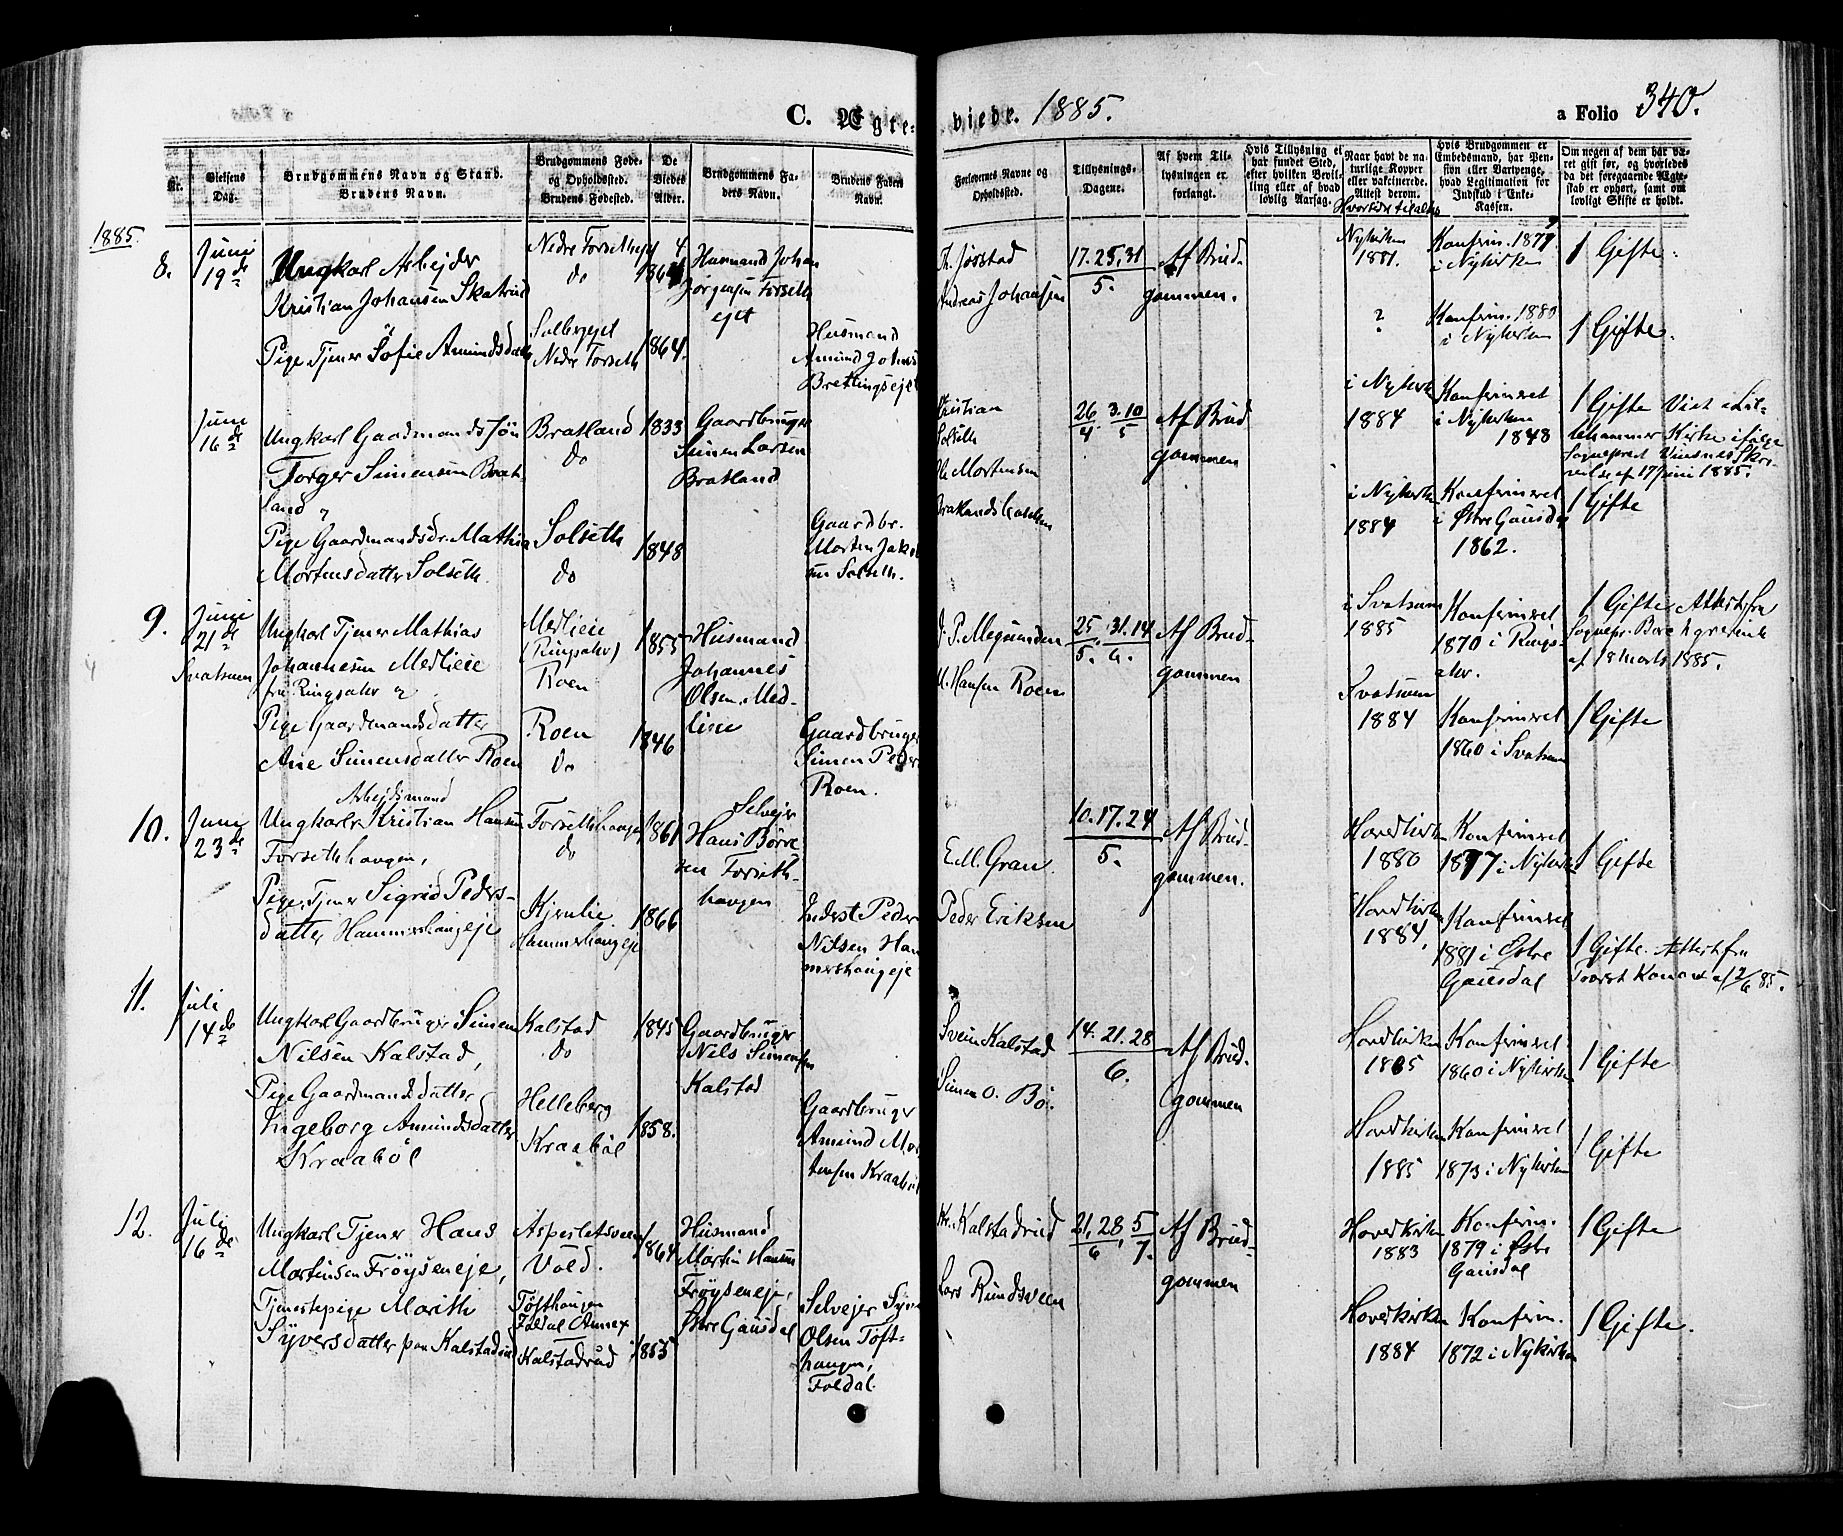 C. Ægte-
viede. 1885.
a Folio 340.
Nr.
Vielsens
Dag.
Brudgommens Navn og Stand.
Brudens Navn.
Brudgommens Føde-
og Opholdssted.
Brudens Fødested.
De
Viedes
Alder.
Brudgommens Fa-
ders Navn.
Brudens Faders
Navn.
Forlovernes Navne og
Opholdssted.
Tillysnings-
Dagene.
Af hvem Til-
lysningen er
forlangt.
Hvis Tillysning ei
har fundet Sted,
efter hvilken Bevil-
ling eller af hvad
lovlig Aarsag.
Naar havt de na-
turlige Kopper
eller vakcinerede.
Attest derom.
Hvis Brudgommen er
Embedsmand, har Pen-
sion eller Vartpenge,
hvad Legitimation for
Indskud i Enke-
Kassen.
Om nogen af dem har væ-
ret gift før, og hvorledes
da det foregaaende Ægte-
skab er ophørt, samt om
lovligt Skifte er holdt.
1885.
8.
Juni
19de
Ungkarl Arbejder
Kristian Johansen Skatrud
Pige Tjener Sofie Amundsdatter
do
Nedre Forseth
1864
1864.
Husmand Johan
Jørgensen Forseth
ejet
Husmand
Amund Johns
Th. Jørstad
Andreas Johansen
17. 25, 31
5.
Af Brud-
gommen.
Nykirken
1881.
?
Konfirm. 1879
i Nykirken
Konfirm. 1880
i Nykirken
1 Gifte.
1 Gifte.
Juni
16de
Ungkarl Gaardmandssøn
Torger Simensen Brat-
land &
Pige Gaardmandsdr. Mathia
Mortensdatter Solseth.
Bratland
do
Solseth
do
1833
1848
Gaardbruger
Simen Larsen
Bratland
Gaardbr.
Morten Jakob
sen Solseth.
Kristian
Solseth
Ole Mortensen
26. 3. 10
4 5
Af Brud
gommen
i Nykirken
1884
i Nykirken
1884
Konfirmeret
i Nykirken
1848
Konfirmeret
i Østre Gausdal
1862.
1 Gifte Viet i Lil-
lehammer Kirke ifølge
Sogneprest Skri-
velse af 17 Juni 1885.
1 Gifte
9.
Juni
21de
Svatsum
Ungkarl Tjener Mathias
Johannesen Medlieie
fra Ringsaker &
Pige Gaardmandsdatter
Ane Simensdatter Roen
Medlieie
(Ringsaker)
Roen
Roen
do
1855
1846
Husmand
Johannes
Olsen Med-
lieie
Gaardbruger
Simen Peder
Roen.
P. Megrunden
M. Hansen Roen
25. 31. 14
5. 6.
Af Brud-
gommen
i Svatsum
1885
Svatsum
1884
Konfirmeret
1870 i Rings-
aker.
Konfirmeret
1860 i Svatsum
1 Gifte Attest fra
Sognepr.
af 18 Marts 1885.
1 Gifte
10.
Juni
23de
Arbejdsmand
Ungkarl Kristian Hansen
Forsethhaugen,
Pige, Tjener Sigrid Peders-
datter Hammershaugeje
Forsethhaugen
do
Kjenlie
Hammershaugeje
1861
1866
Selvejer
Hans Børre
sen Forseth-
haugen
Inderst Peder
Nilsen Ham
mershaugeje
E. M. Gran.
Peder Eriksen
10. 17. 24
5.
Af Brud-
gommen.
Hovedkirken
1880
Hovedkirken
1884,
Konfirmeret
1877 i Nykirken
Konfirmeret
1881 i Østre
Gausdal
1 Gifte
1 Gifte. Attest fra
Provst Konow af 12/6 85.
11.
Juli
14de
Ungkarl Gaardbruger Simen
Nilsen Kalstad,
Pige Gaardmandsdatter
Ingeborg Amundsdatter
Kraabøl
Kalstad
do
Helleberg
Kraabøl
1845
1858.
Gaardbruger
Nils Simensen
Kalstad
Gaardbruger
Amund Mor
tensen Kraabøl
Svein Kalstad
Simen O. Bø.
14. 21. 28
6.
Af Brud-
gommen
Hovedkirken
1885
Hovedkirken
1885
Konfirmeret
1860 i Nykirken
Konfirmeret
1873 i Nykirken
1 Gifte
1 Gifte
12.
Juli
16de
Ungkarl Tjener Hans
Martinsen Frøyseneje,
Tjenestepige Marith
Syversdatter paa Kalstadrud
Vold.
Tøfthaugen
Foldal Annex
Kalstadrud
1864
1855
Husmand
Martin Hansen
Frøyseneje,
Østre Gausdal
Selvejer Syver
Olsen Tøft-
haugen,
Foldal.
Kr. Kalstadrud
Lars Rundsveen
21, 28, 5
6 7.
Af Brud-
gommen
Hovedkirken
1883
Hovedkirken
1884
Konfirm.
1879 i Østre
Gausdal
Konfirm.
1872 i Nykirken
1 Gifte
1 Gifte.